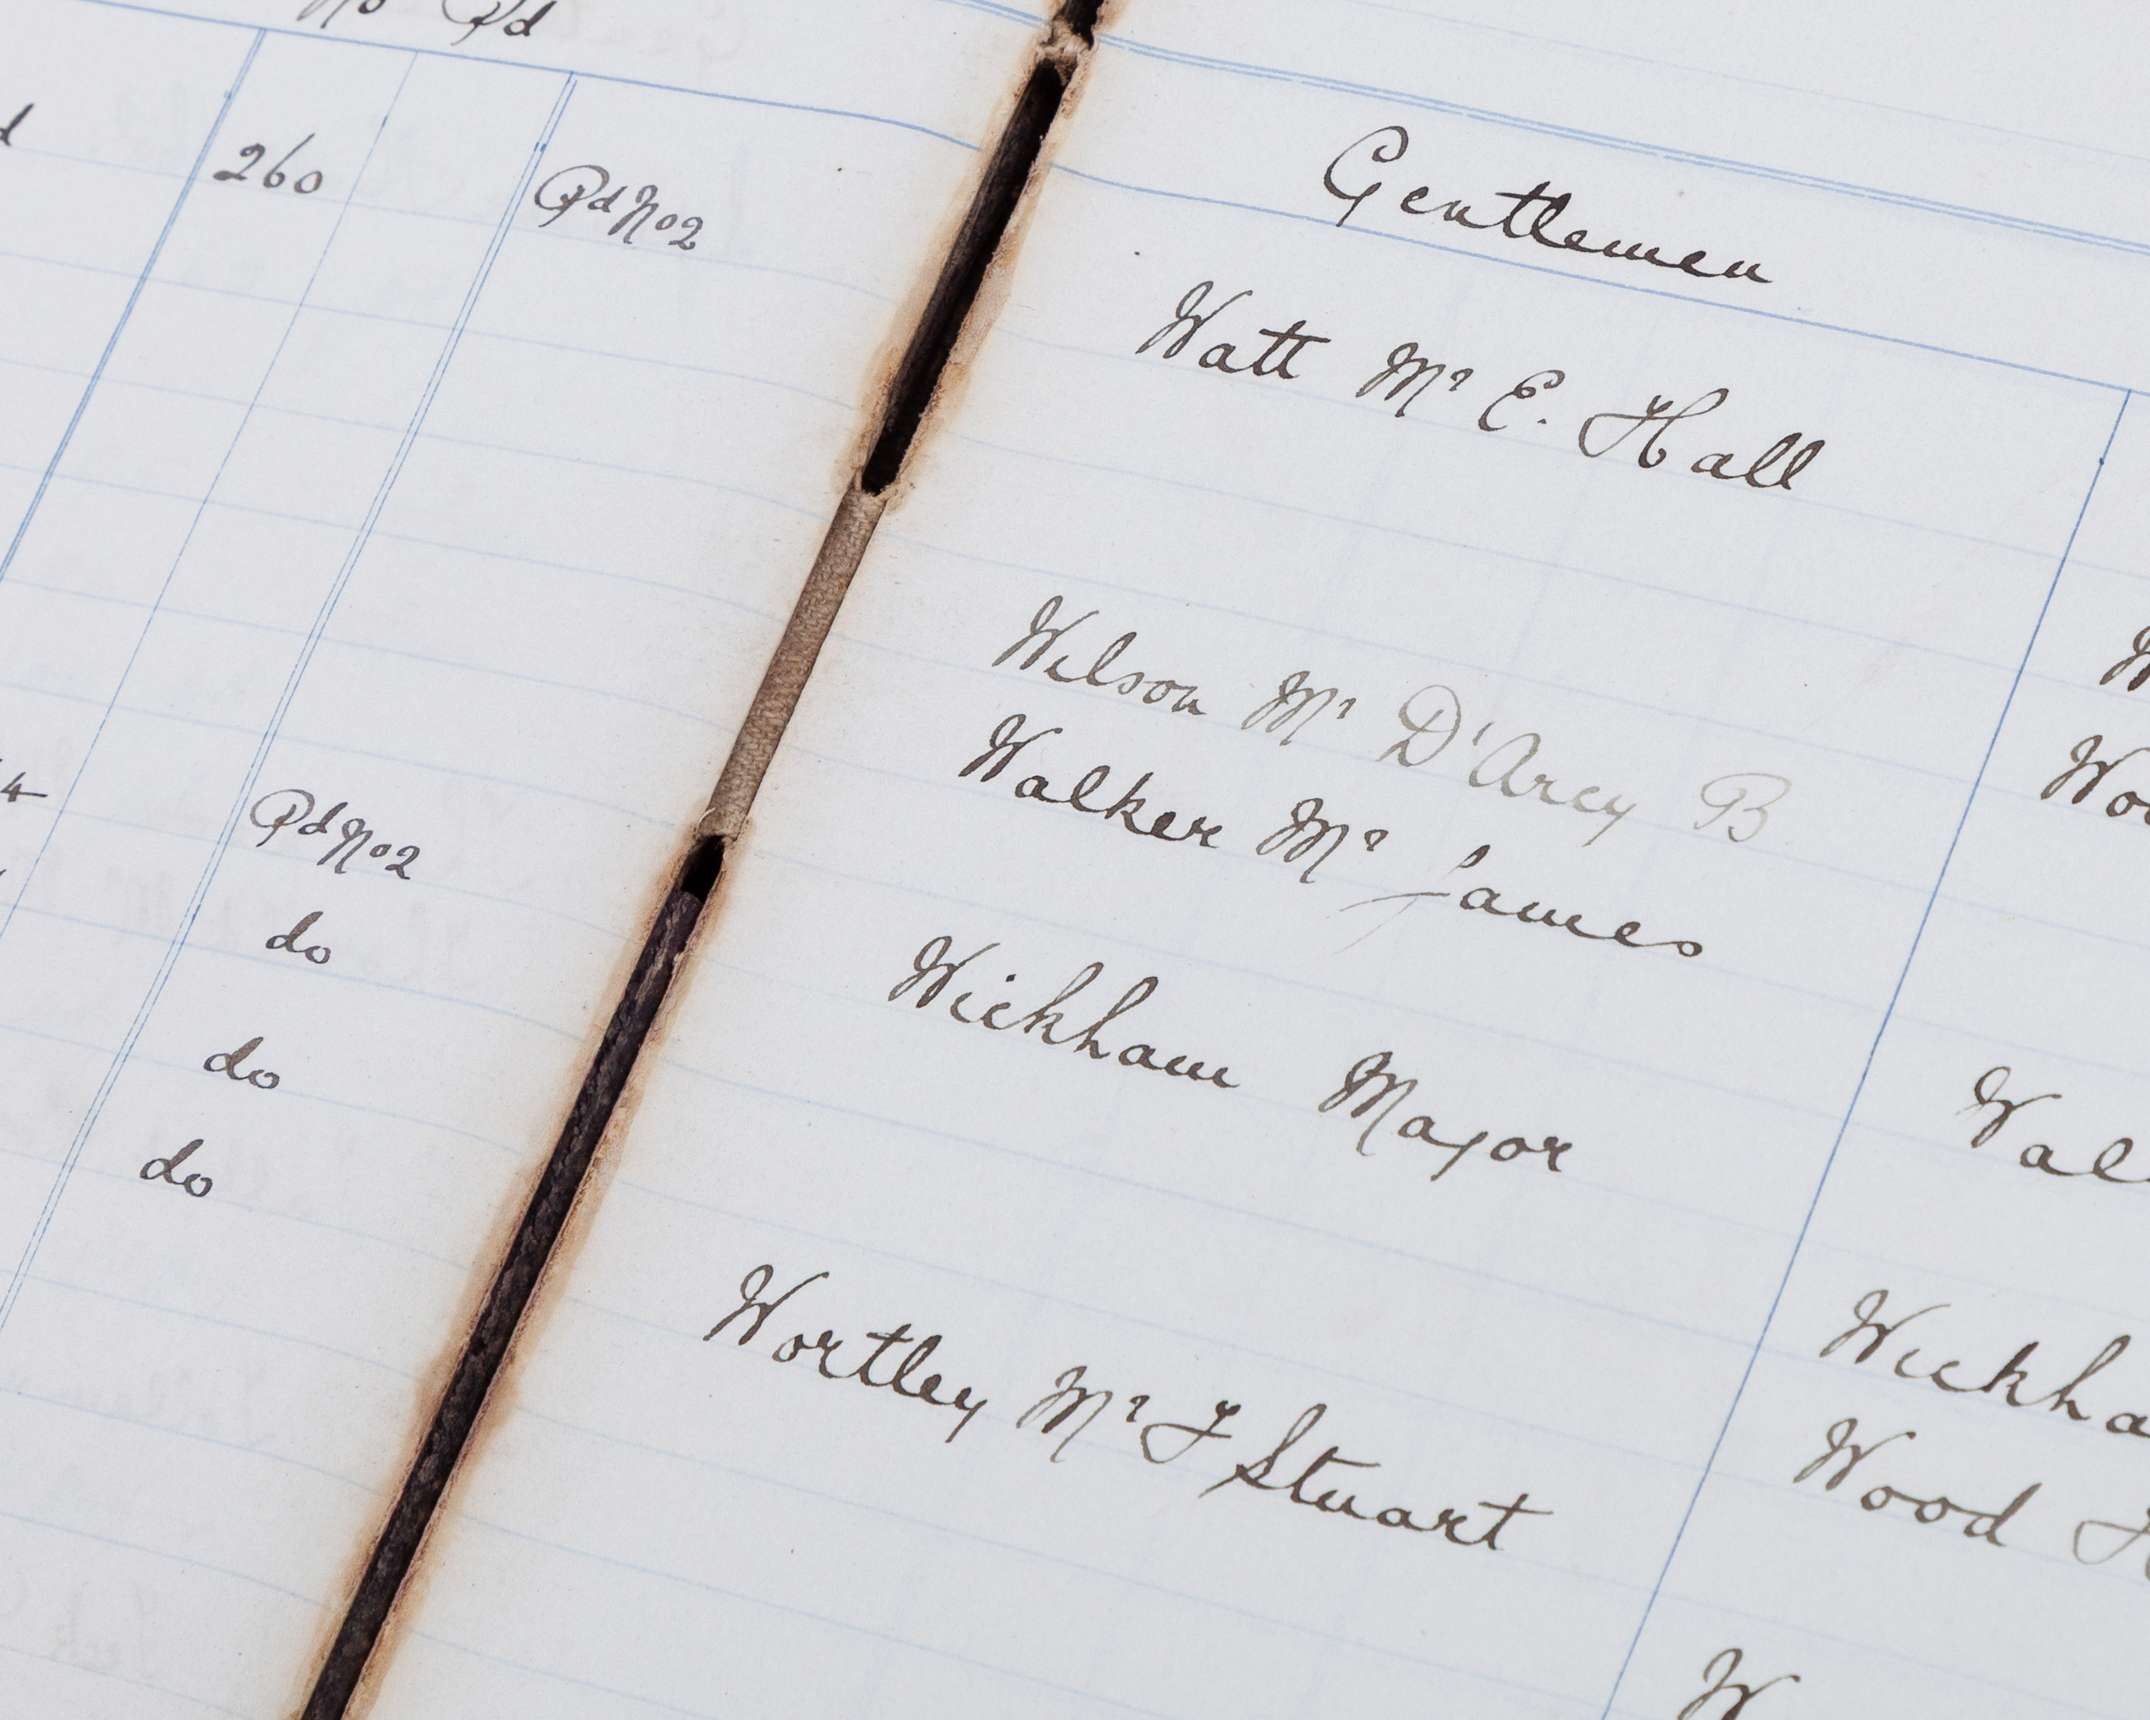 No Pd
260 Pd No 2
4 Pd No 2
do
do
do
Gentlemen
Watt Mr E. Hall
Wilson Mr D'Arcy B
Walker Mr James
Wickham Major
Wortley Mr J Stuart
Wal
Wickha
Wood
W